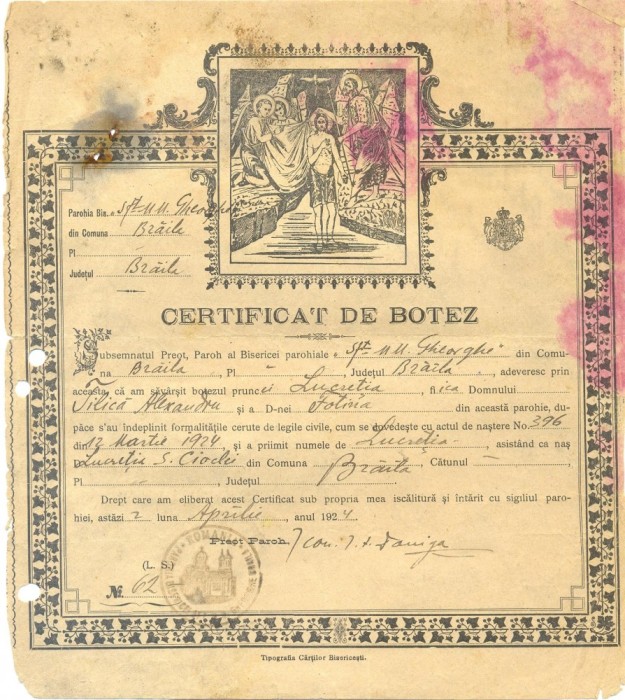 Parohia Bis. Sft. M. M. Gheorghe
din Comuna Brăila
Pl
Județul Brăila
CERTIFICAT DE BOTEZ
Subsemnatul Preot, Paroh al Bisericei parohiale Sft. M. M. Gheorghe din Comu-
na Brăila, Pl „ , Județul Brăila, adeveresc prin
aceasta, că am săvârșit botezul pruncii Lucreția, fiica Domnului
Alexandru și a D-nei Fotina din această parohie, du-
păce s'au îndeplinit formalitățile cerute de legile civile, cum se dovedește cu actul de naștere No. 396
din 12 Martie 1924, și a priimit numele de Lucreția, asistând ca naș
Lucreția S. din Comuna Brăila, Cătunul —,
Pl , Județul
Drept care am eliberat acest Certificat sub propria mea iscălitură și întărit cu sigiliul paro-
hiei, astăzi 2 luna Aprilie, anul 1924.
Preot Paroh,
(L. S.)
№ 62
ROMANIA
Tipografia Cărților Bisericești.